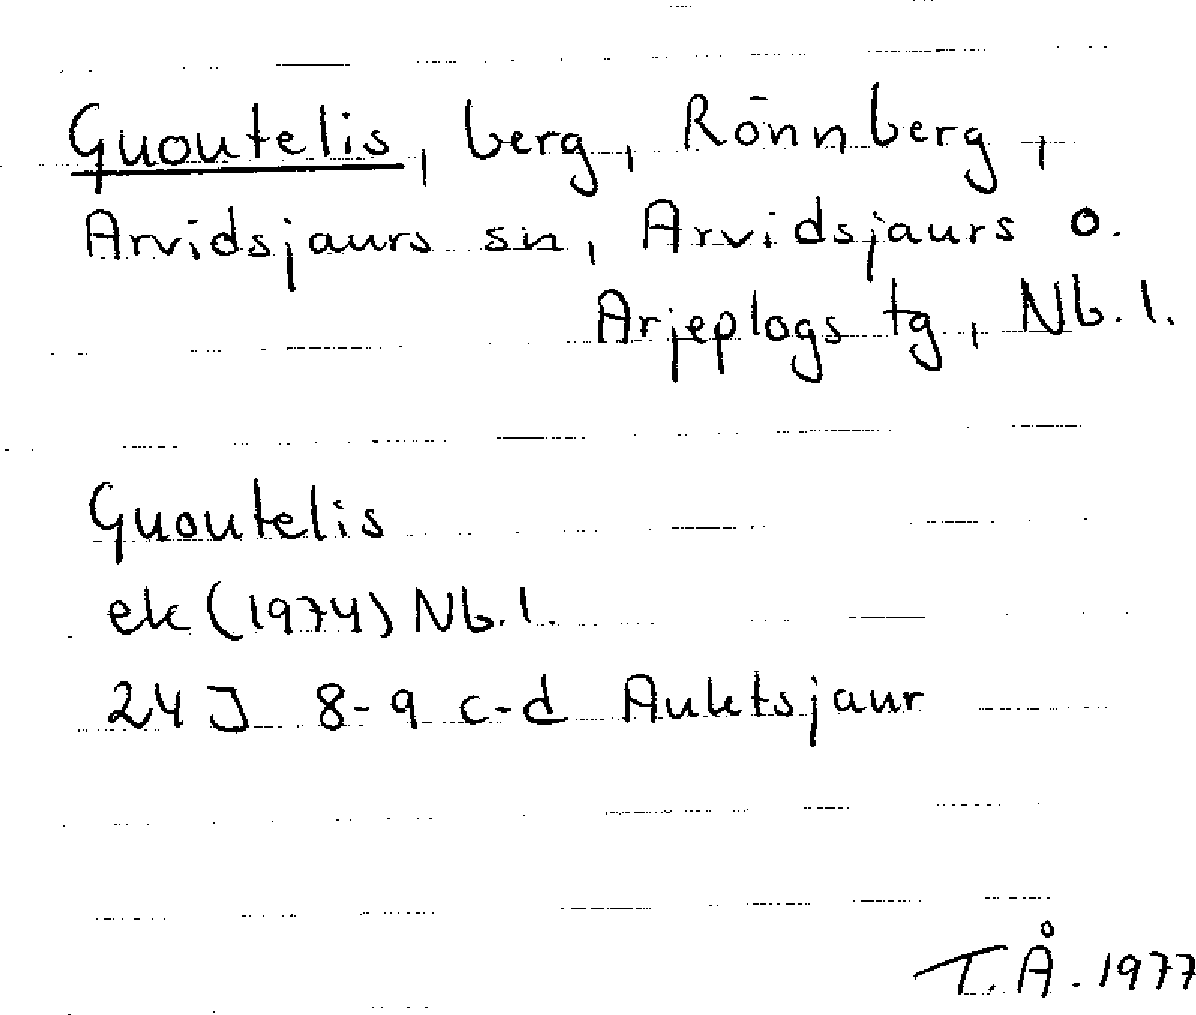 Guoutelis, berg, Rönnberg,
Arvidsjaurs sn, Arvidsjaurs o.
Arjeplogs tg, Nb.l.
Guoutelis
ek (1974) Nb.l.
24J 8-9 c-d Auktsjaur
T.Å. 1977